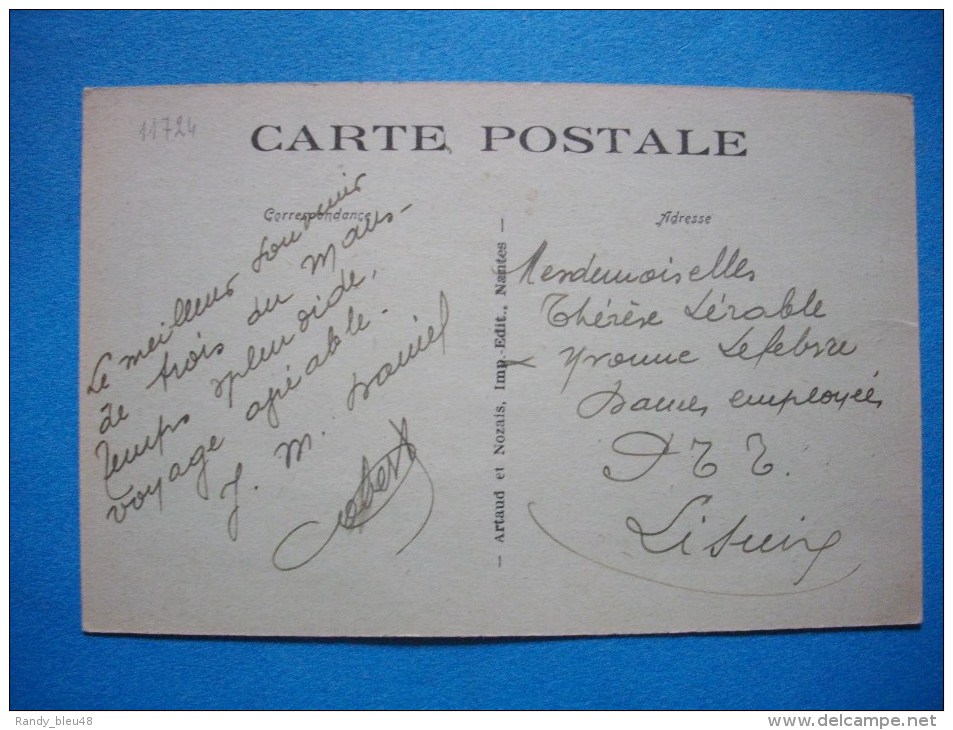 11724
CARTE POSTALE
Correspondance
Le meilleur souvenir
de trois du Mans -
temps splendide,
voyage agréable -
J. M. Daniel
— Artaud et Nozais, Imp.-Edit., Nantes —
Adresse
Mesdemoiselles
Thérèse Lérable
Yvonne Lefebvre
Dames employées
PTT.
Lisieux
Randy_bleu48
http://www.delcampe.net